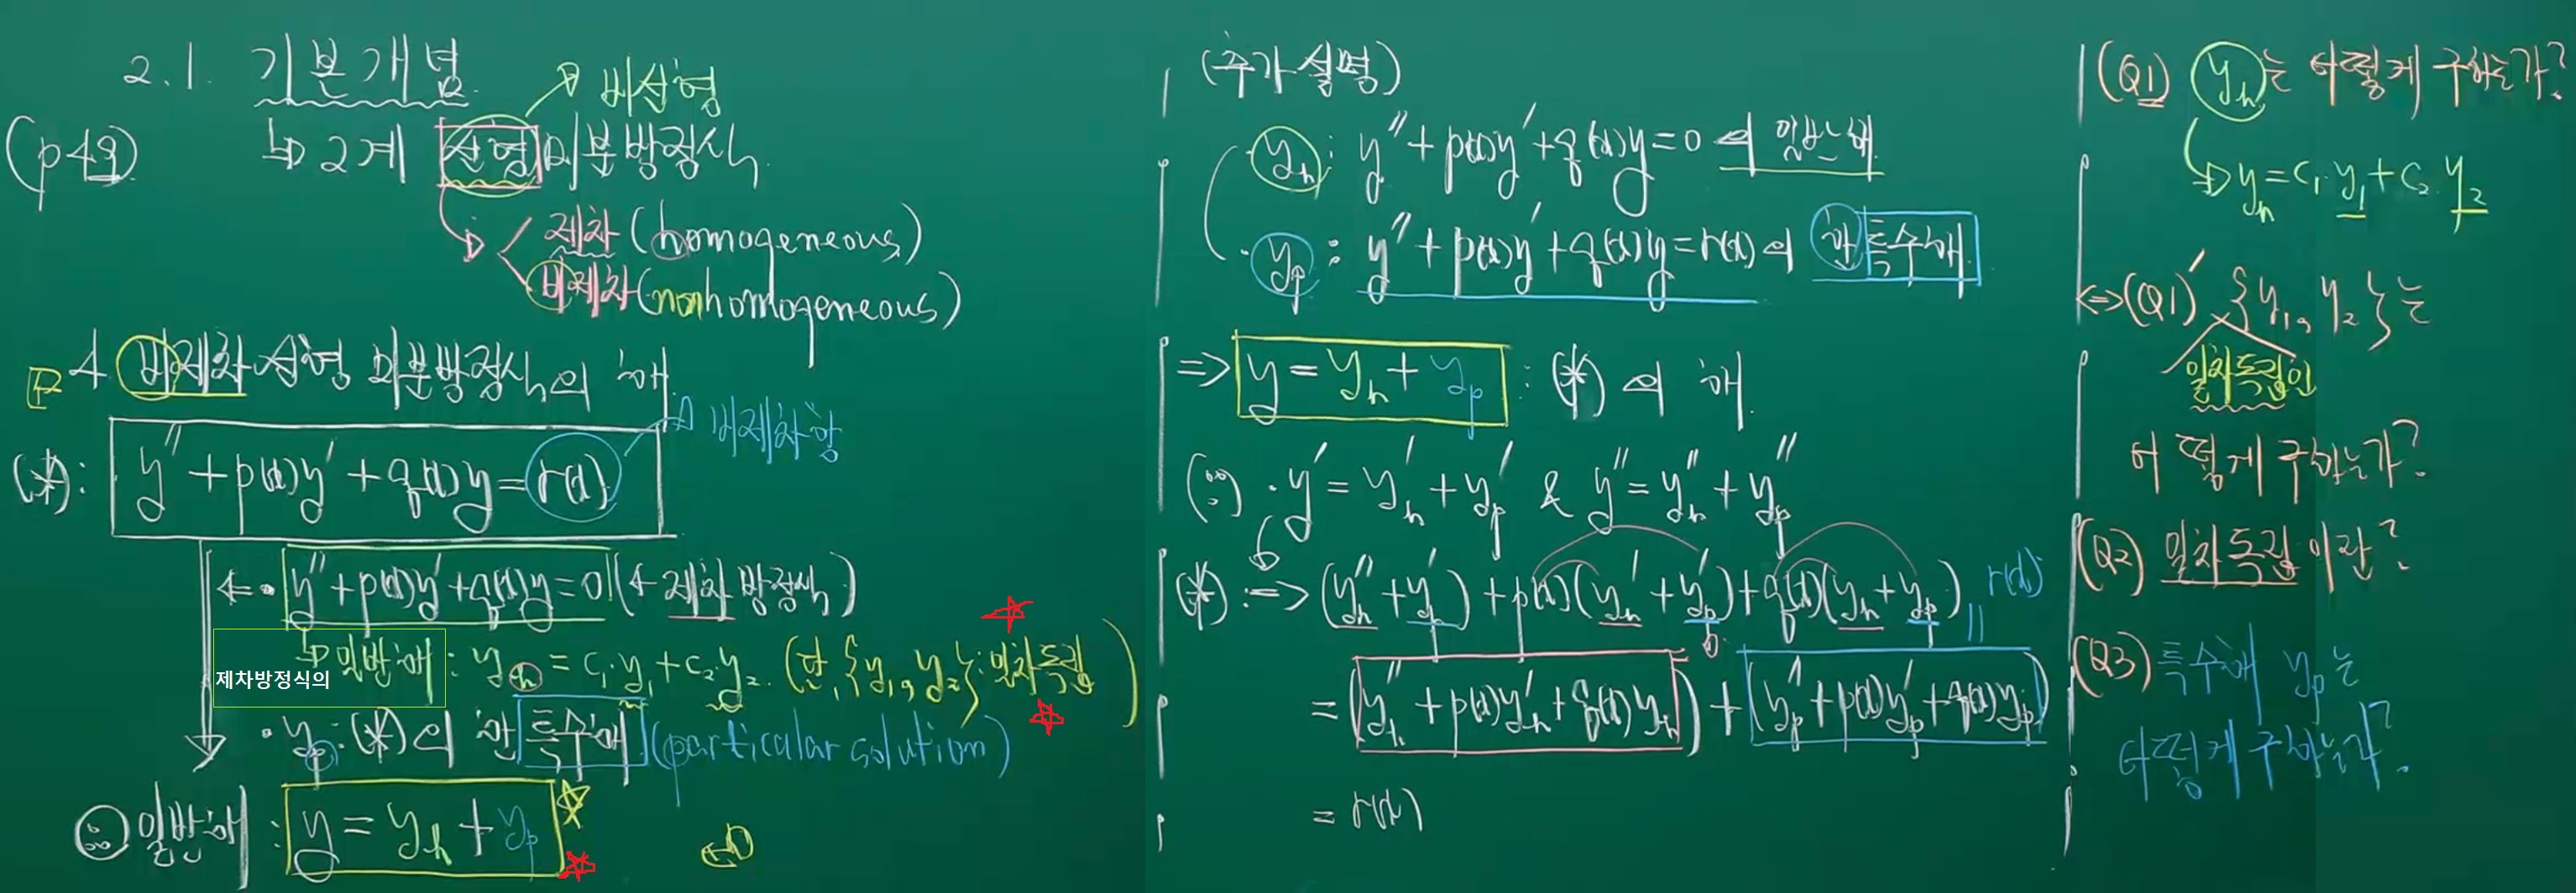 2.1. 기본개념
(p49) ↳ 2계 선형 미분방정식 → 비선형
제차 (homogeneous)
비제차 (nonhomogeneous)
비제차 선형 미분방정식의 해
(*): y'' + p(x)y' + q(x)y = r(x) → 비제차항
← · y'' + p(x)y' + q(x)y = 0 (← 제차 방정식)
제차방정식의 ↳ 일반해 : y_h = c₁y₁ + c₂y₂. (단, {y₁, y₂} : 일차독립)
· y_p : (*)의 한 특수해 (particular solution)
일반해 : y = y_h + y_p
(추가설명)
· y_h : y'' + p(x)y' + q(x)y = 0 의 일반해
· y_p : y'' + p(x)y' + q(x)y = r(x) 의 한 특수해
=> y = y_h + y_p : (*)의 해.
(∵) · y' = y_h' + y_p' & y'' = y_h'' + y_p''
(*) : => (y_h'' + y_p'') + p(x)(y_h' + y_p') + q(x)(y_h + y_p)
= (y_h'' + p(x)y_h' + q(x)y_h) + (y_p'' + p(x)y_p' + q(x)y_p)
= 0
= r(x)
= r(x)
(Q1) y_h는 어떻게 구하는가?
↳ y_h = c₁·y₁ + c₂·y₂
<=> (Q1)' {y₁, y₂}는
일차독립인
어떻게 구하는가?
(Q2) 일차독립이란?
(Q3) 특수해 y_p는
어떻게 구하는가?